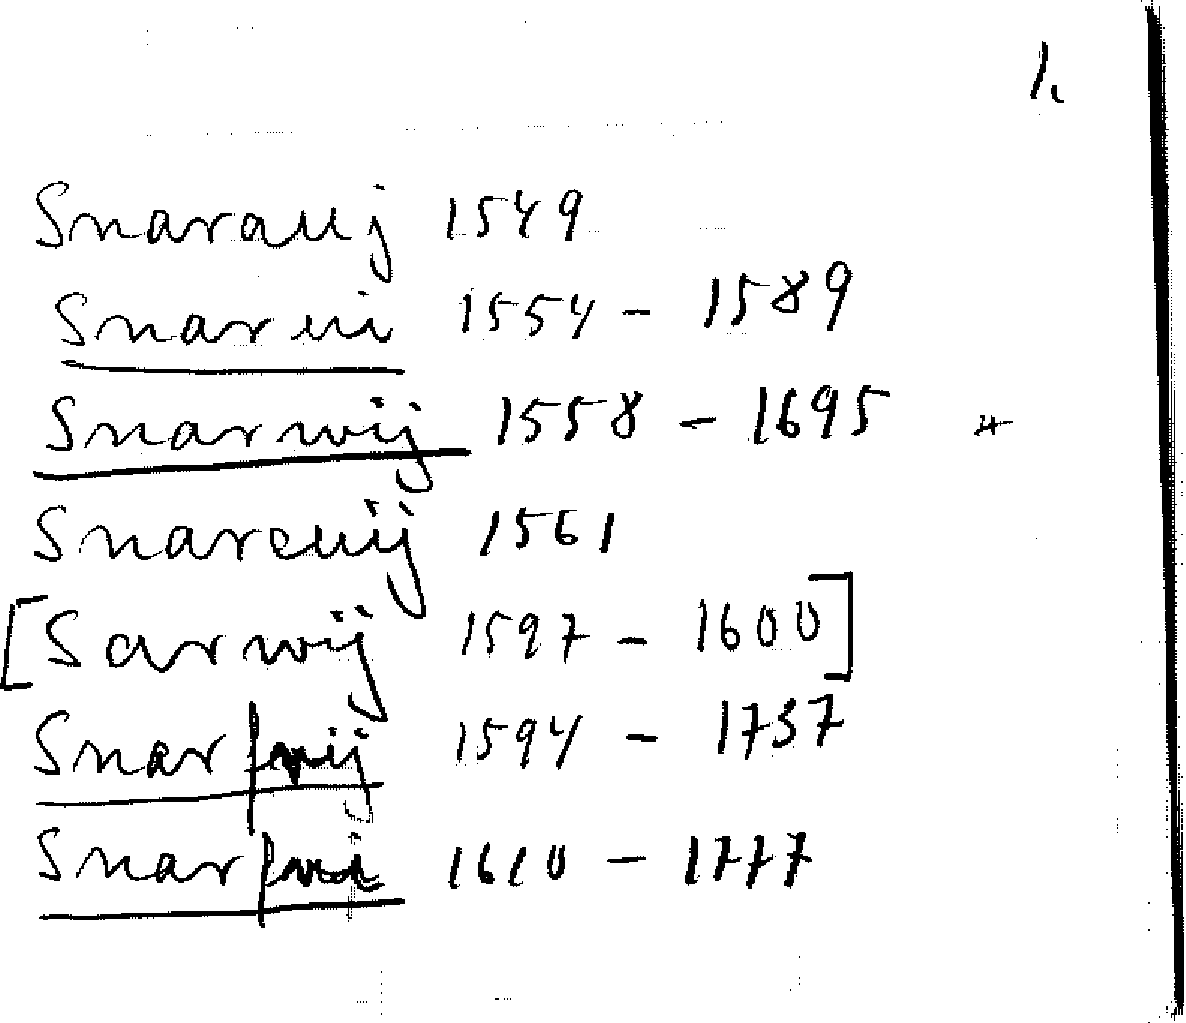 1.
Snarauij 1549
Snarvii 1554 - 1589
Snarwij 1558 - 1695 *
Snareuij 1561
[Sarwij 1597 - 1600]
Snar 1594 - 1737
Snar 1610 - 1777